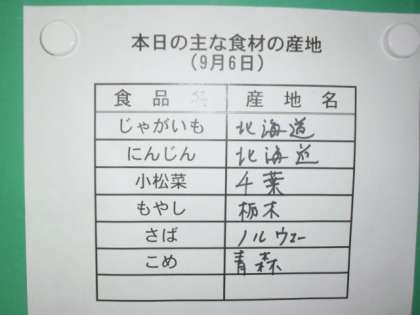 本日の主な食材の産地
(9月6日)
食品名 産地名
じゃがいも 北海道
にんじん 北海道
小松菜 千葉
もやし 栃木
さば ノルウェー
こめ 青森